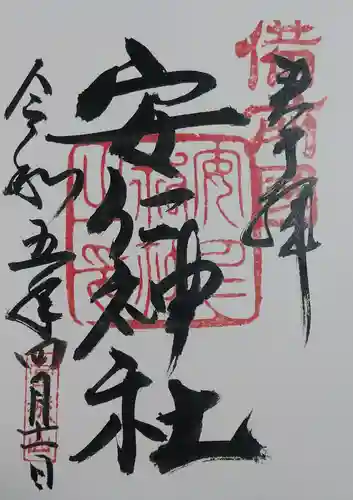 奉拝
備前國
安仁神社
令和五年四月十一日